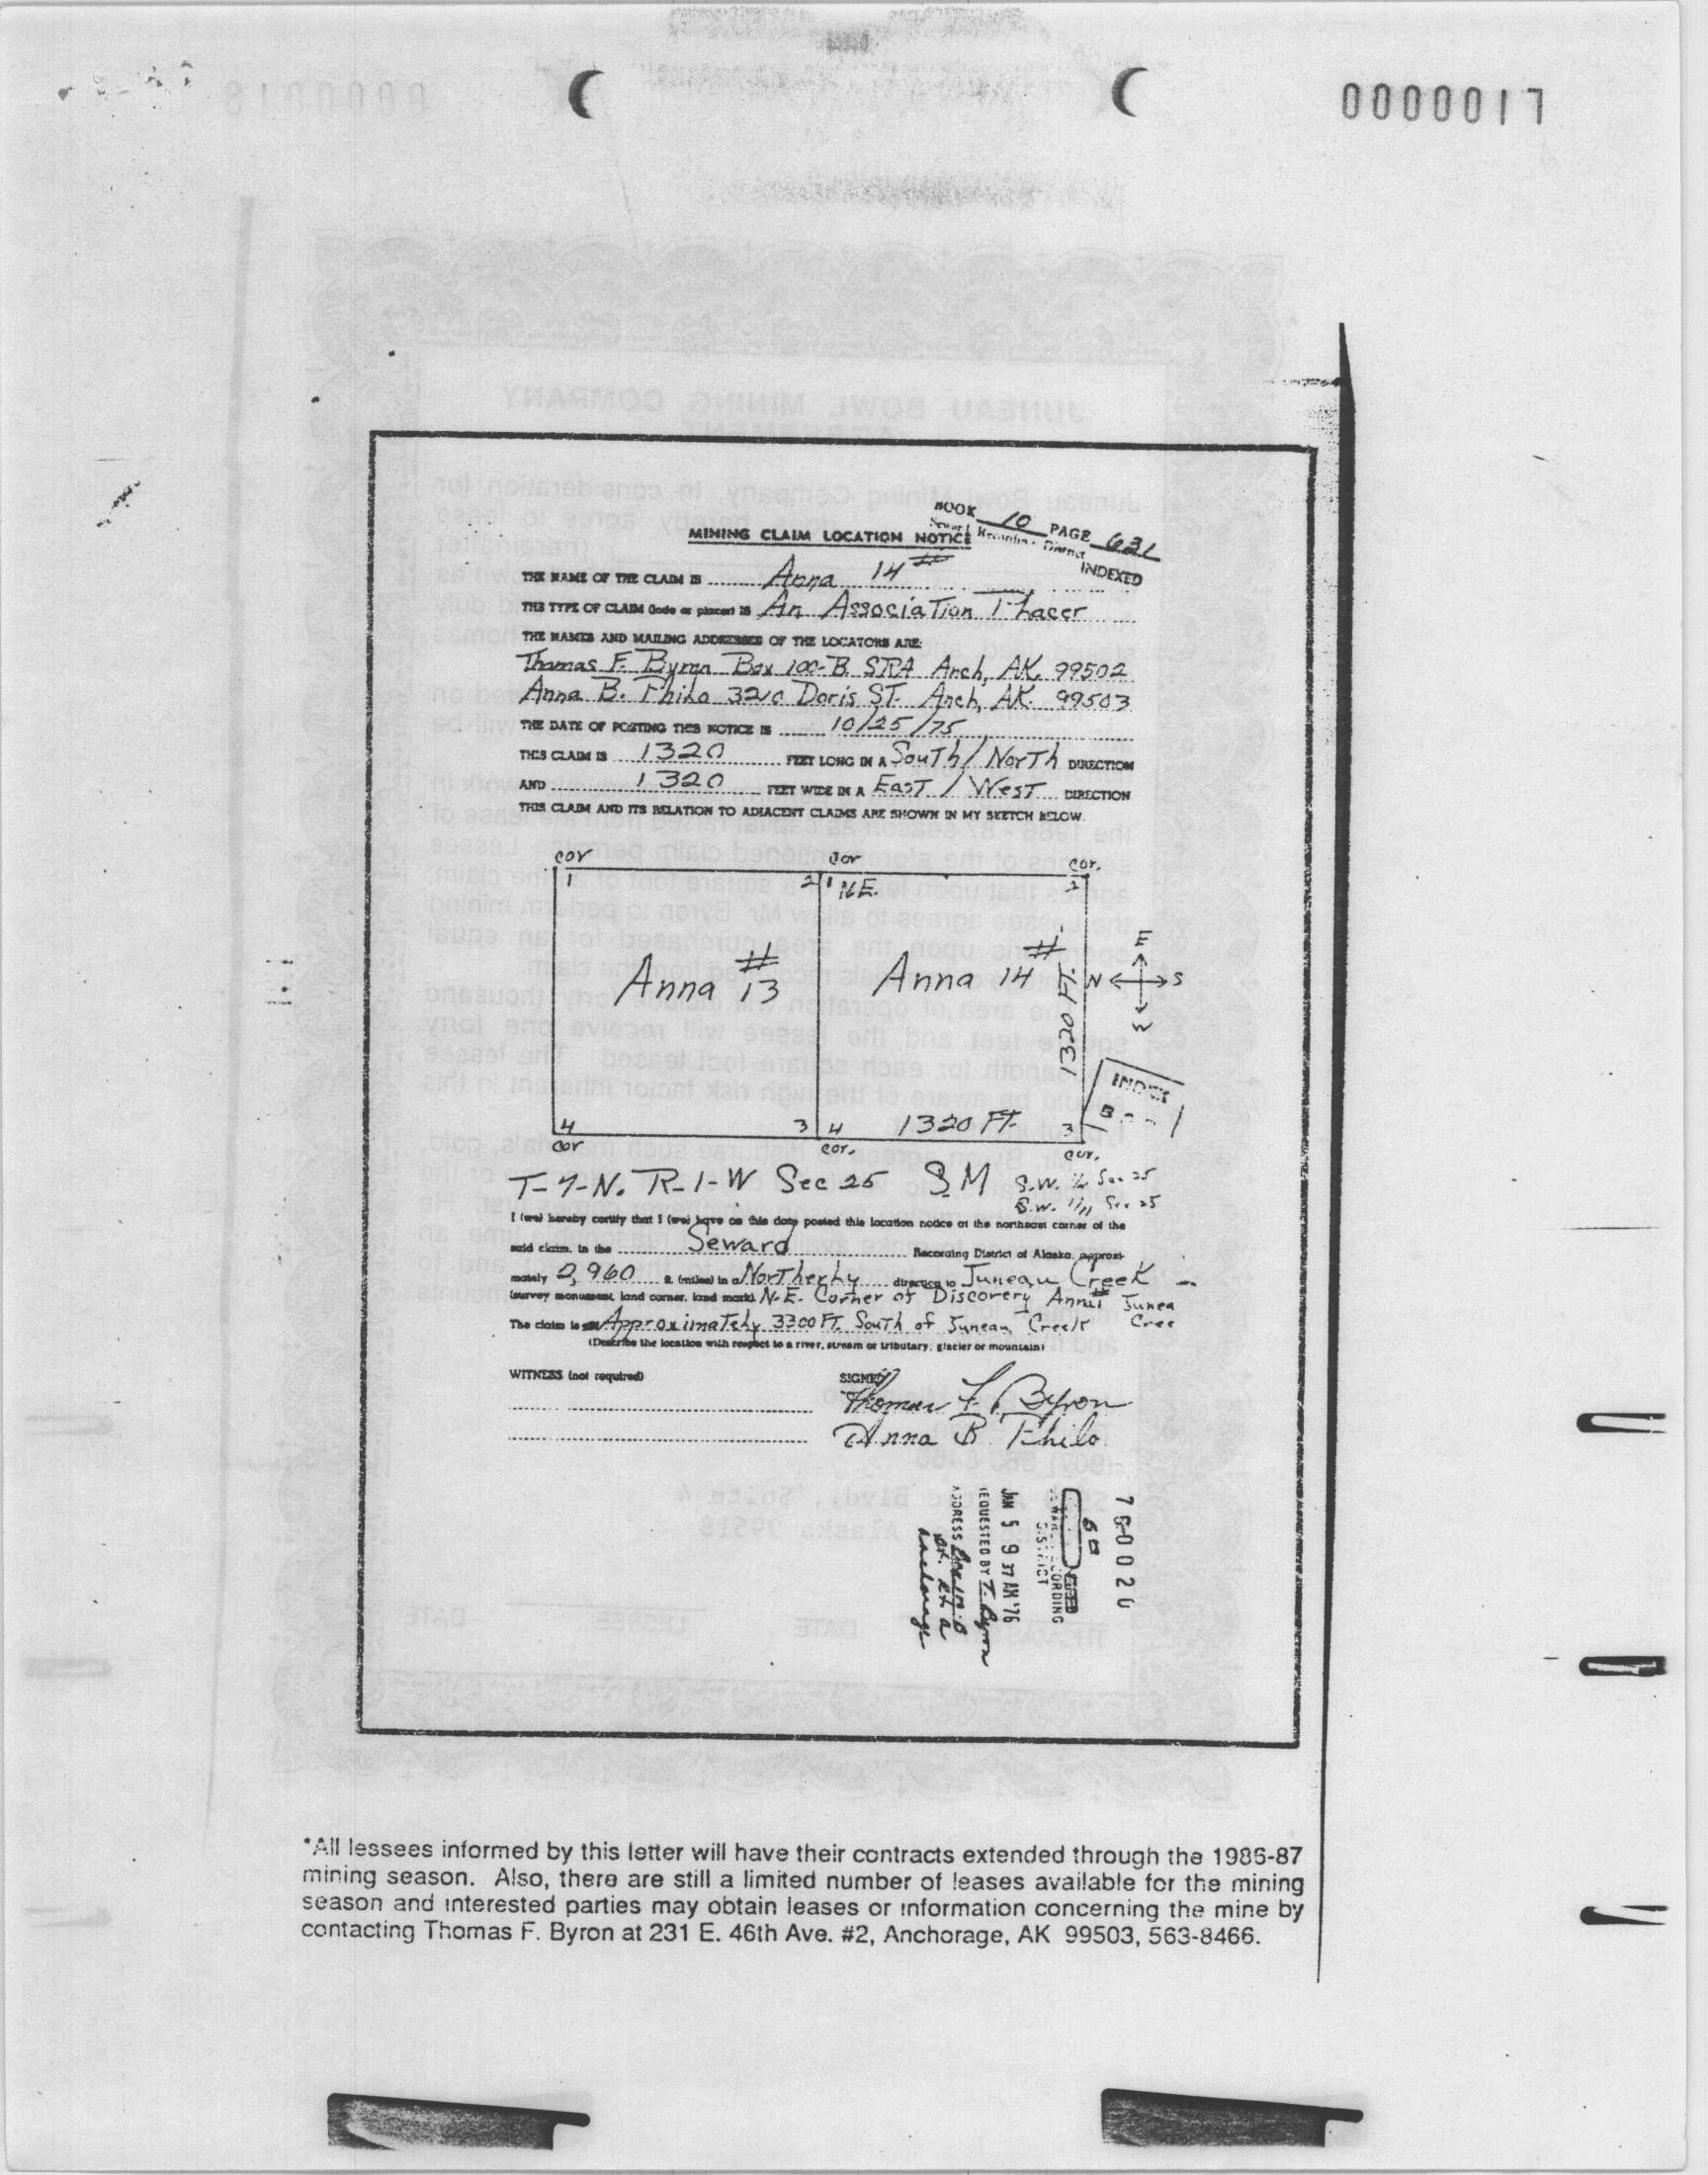 0000017
BOOK 10 PAGE 631
Seward Recording District
INDEXED
MINING CLAIM LOCATION NOTICE
THE NAME OF THE CLAIM IS Anna 14 #
THE TYPE OF CLAIM (lode or placer) IS An Association Placer
THE NAMES AND MAILING ADDRESSES OF THE LOCATORS ARE:
Thomas F. Byron Box 100-B. SRA Anch, AK. 99502
Anna B. Philo 3210 Doris ST. Anch, AK. 99503
THE DATE OF POSTING THIS NOTICE IS 10/25/75
THIS CLAIM IS 1320 FEET LONG IN A South/North DIRECTION
AND 1320 FEET WIDE IN A East/West DIRECTION
THIS CLAIM AND ITS RELATION TO ADJACENT CLAIMS ARE SHOWN IN MY SKETCH BELOW.
cor cor cor.
1 2 1 N.E. 2
Anna # 13 Anna 14 #
1320 FT.
E
N S
W
INDEX
4 3 4 1320 FT. 3
cor cor. cor.
T-7-N. R-1-W Sec 25 S.M S.W. 1/4 Sec 25
S.W. Sec 25
I (we) hereby certify that I (we) have on this date posted this location notice at the northeast corner of the
said claim, in the Seward Recording District of Alaska, approxi-
mately 2,960 ft. (miles) in a Northerly direction to Juneau Creek
(survey monument, land corner, land mark) N.E. Corner of Discovery Anna #1 Junea
The claim is Approximately 3300 FT. South of Juneau Creek Cree
(Describe the location with respect to a river, stream or tributary, glacier or mountain)
WITNESS (not required) SIGNED
Thomas F. Byron
Anna B Philo
76-0020
RECORDING
DISTRICT
JAN 5 9 37 AM '76
REQUESTED BY T. Byron
ADDRESS Box 100-B
St. Rt. A
Anchorage
*All lessees informed by this letter will have their contracts extended through the 1986-87
mining season. Also, there are still a limited number of leases available for the mining
season and interested parties may obtain leases or information concerning the mine by
contacting Thomas F. Byron at 231 E. 46th Ave. #2, Anchorage, AK 99503, 563-8466.